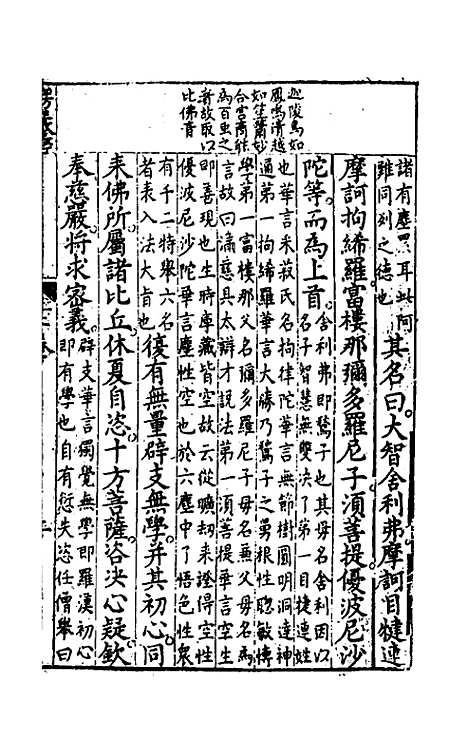 迦陵鳥如
鳳鳴清越
如笙簫妙
合宮商能
為百虫之
音故取以
比佛音
諸有塵累耳此阿
雖同列之德也
其名曰大智舍利弗摩訶目犍連
摩訶拘絺羅富樓那彌多羅尼子須菩提優波尼沙
陀等而為上首
舍利弗即鶖子也其母名舍利因以
名子智慧無雙決了第一目揵連姓
也華言采菽氏名拘律陀華言無節樹圓明洞達神
通第一拘絺羅華言大膝乃鶖子之舅根性聦敏博
學第一富樓那父名彌羅尼子母名無父母名爲
言故曰滿慈具大辯才說法第一須菩提華言空生
即善現也生時庫藏皆空故云從曠劫來證得空性
優波尼沙陀華言塵性空也於六塵中了悟色性衆
有千二特舉六名
者表入法大旨也
復有無量辟支無學并其初心同
來佛所屬諸比丘休夏自恣十方菩薩咨決心疑欽
奉慈嚴將求宻義
辟支華言獨覺無學即羅漢初心
即有學也自有愆失恣任僧舉曰